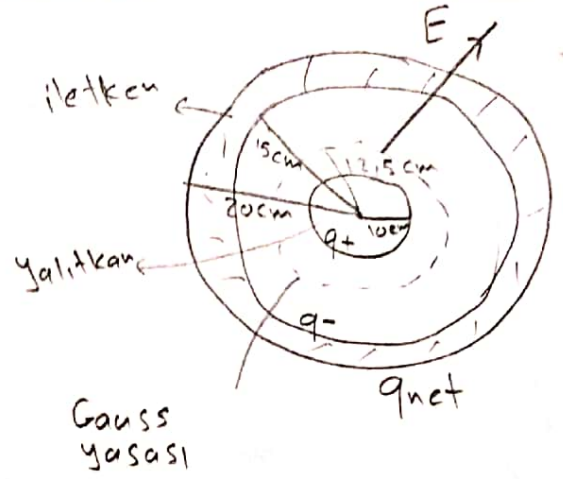 E
iletken
15cm
12,5cm
20cm
10cm
q+
yalıtkan
q-
qnet
Gauss
yasası